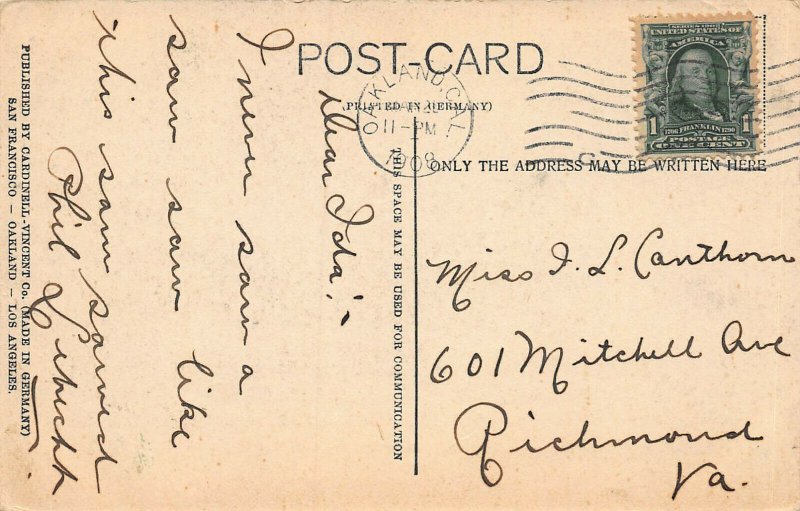 POST-CARD
(PRINTED IN GERMANY)
OAKLAND, CAL.
11-PM
1908
SERIES 1902
UNITED STATES OF
AMERICA
1 1
1706 FRANKLIN 1790
POSTAGE
ONE CENT
ONLY THE ADDRESS MAY BE WRITTEN HERE
THIS SPACE MAY BE USED FOR COMMUNICATION
Dear Ida:-
I never saw a
saw saw like
this saw sawed
Phil
Miss I. L. Canthorn
601 Mitchell Ave
Richmond
Va.
PUBLISHED BY CARDINELL-VINCENT CO. (MADE IN GERMANY)
SAN FRANCISCO – OAKLAND – LOS ANGELES.